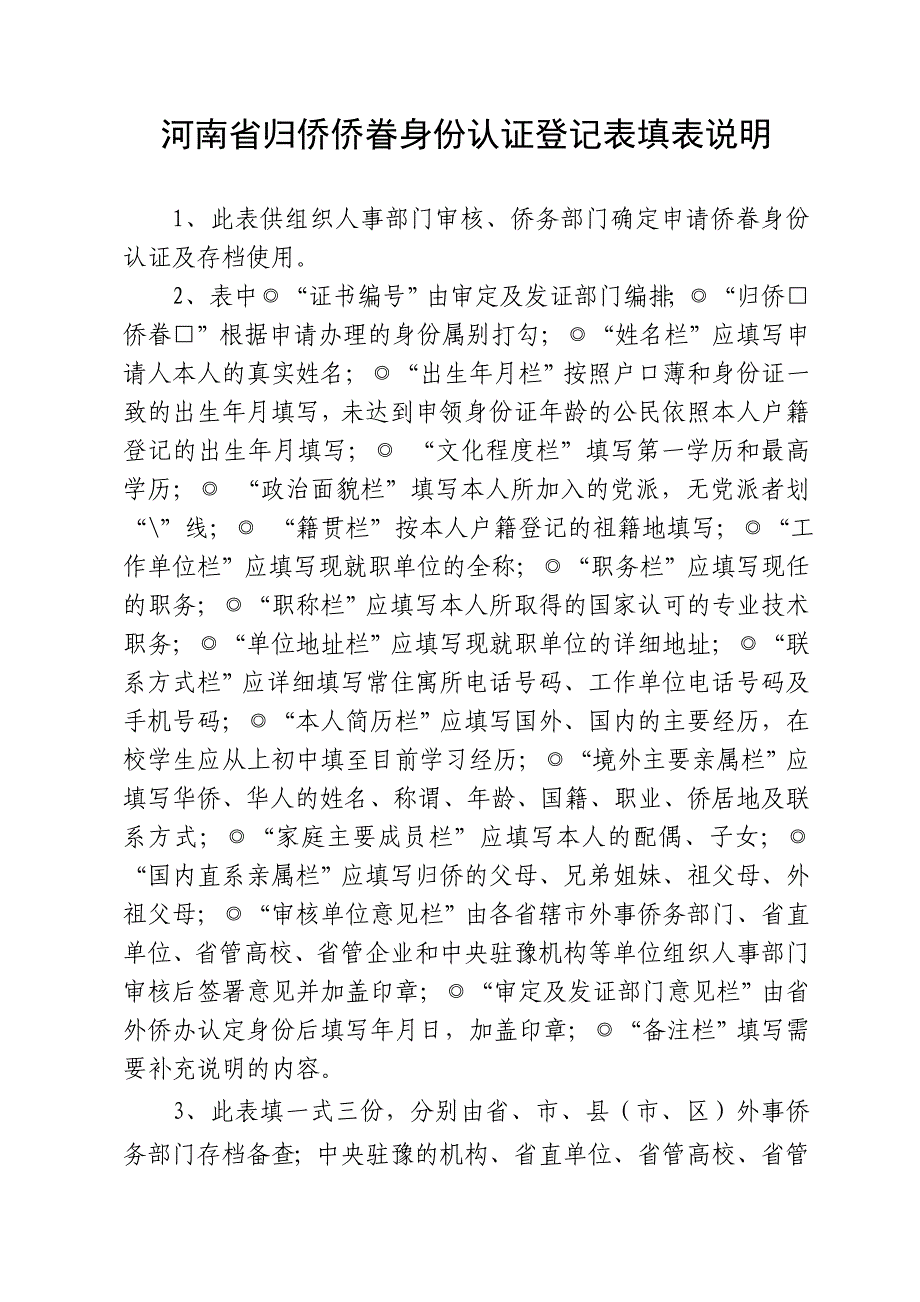 河南省归侨侨眷身份认证登记表填表说明
1、此表供组织人事部门审核、侨务部门确定申请侨眷身份
认证及存档使用。
2、表中◎“证书编号”由审定及发证部门编排；◎“归侨□
侨眷□”根据申请办理的身份属别打勾；◎“姓名栏”应填写申
请人本人的真实姓名；◎“出生年月栏”按照户口薄和身份证一
致的出生年月填写，未达到申领身份证年龄的公民依照本人户籍
登记的出生年月填写；◎ “文化程度栏”填写第一学历和最高
学历；◎ “政治面貌栏”填写本人所加入的党派，无党派者划
“\”线；◎ “籍贯栏”按本人户籍登记的祖籍地填写；◎“工
作单位栏”应填写现就职单位的全称；◎“职务栏”应填写现任
的职务；◎“职称栏”应填写本人所取得的国家认可的专业技术
职务；◎“单位地址栏”应填写现就职单位的详细地址；◎“联
系方式栏”应详细填写常住寓所电话号码、工作单位电话号码及
手机号码；◎“本人简历栏”应填写国外、国内的主要经历，在
校学生应从上初中填至目前学习经历；◎“境外主要亲属栏”应
填写华侨、华人的姓名、称谓、年龄、国籍、职业、侨居地及联
系方式；◎“家庭主要成员栏” 应填写本人的配偶、子女；◎
“国内直系亲属栏”应填写归侨的父母、兄弟姐妹、祖父母、外
祖父母；◎“审核单位意见栏”由各省辖市外事侨务部门、省直
单位、省管高校、省管企业和中央驻豫机构等单位组织人事部门
审核后签署意见并加盖印章；◎“审定及发证部门意见栏”由省
外侨办认定身份后填写年月日，加盖印章；◎“备注栏”填写需
要补充说明的内容。
3、此表填一式三份，分别由省、市、县（市、区）外事侨
务部门存档备查；中央驻豫的机构、省直单位、省管高校、省管